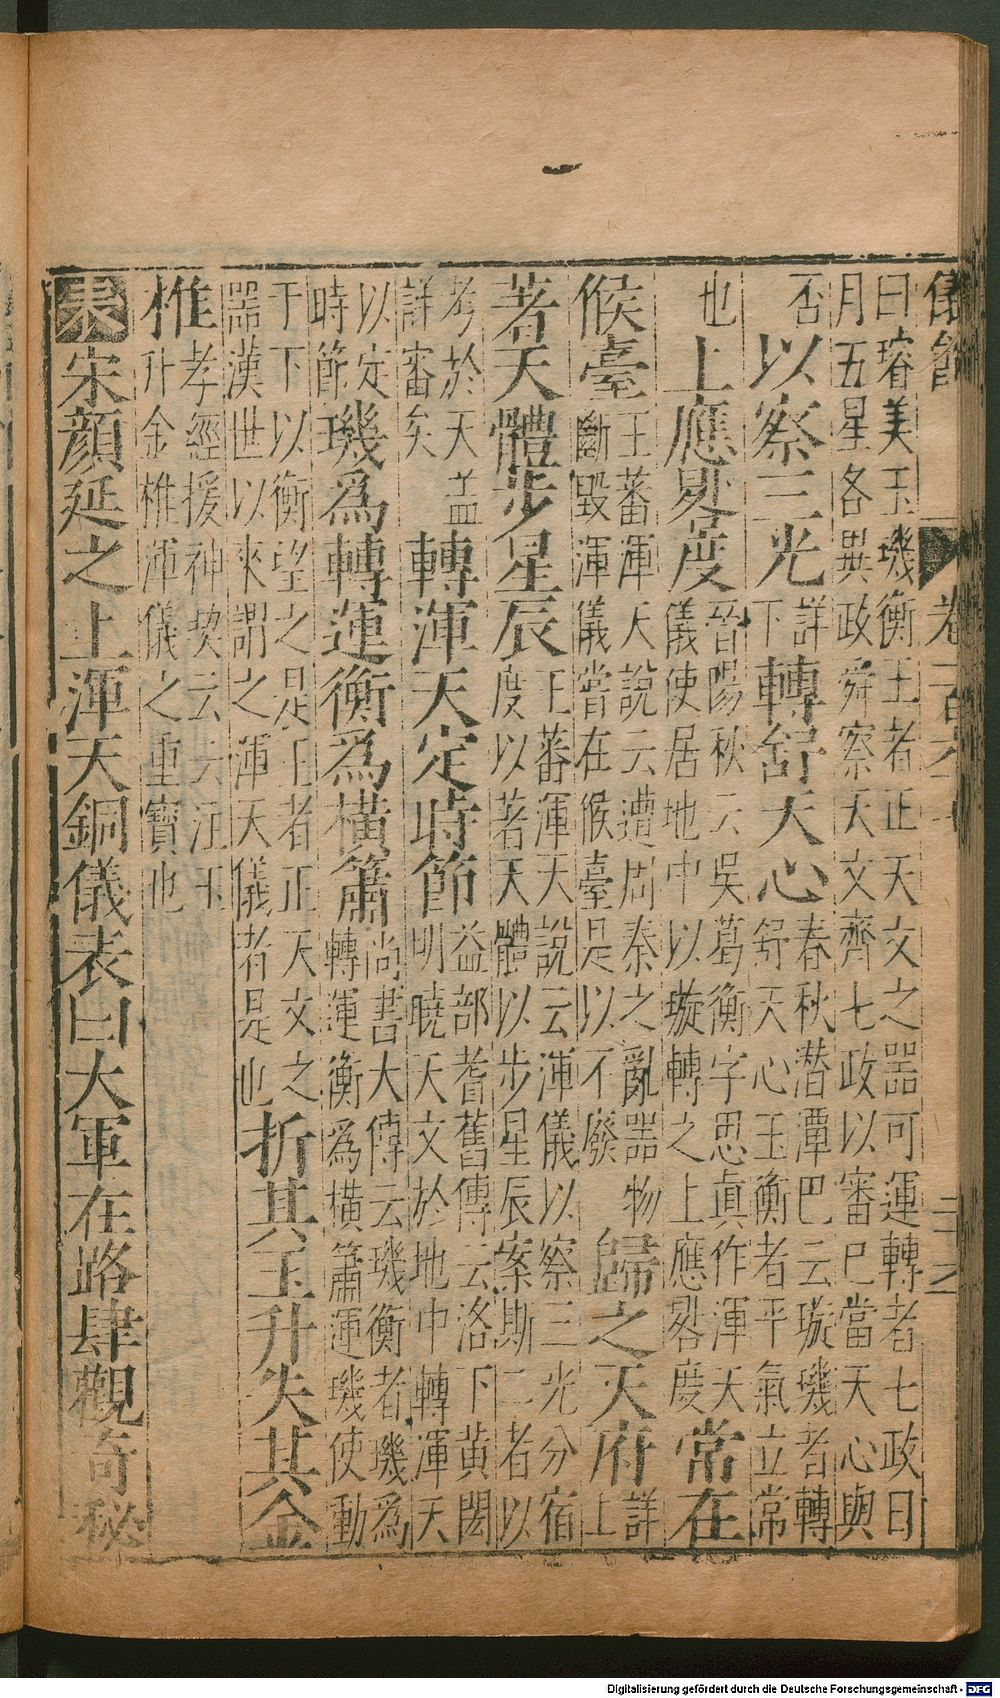 儀飾 卷一百六
曰璿美玉璣衡王者正天文之器可運轉者七政日
月五星各異政舜察天文齊七政以審已當天心與
否以察三光詳下轉舒天心春秋潛潭巴云璇璣者轉
舒天心玉衡者平氣立常
也上應晷度晉陽秋云吳葛衡字思眞作渾天
儀使居地中以璇轉之上應晷度常在
候臺王蕃渾天說云遭周秦之亂器物
斷毀渾儀嘗在候臺是以不廢歸之天府詳上
著天體步星辰王蕃渾天說云渾儀以察三光分宿
度以著天體以步星辰案斯二者以
考於天蓋
詳審矣轉渾天定時節益部耆舊傳云洛下黄閎
明曉天文於地中轉渾天
以定
時節璣爲轉運衡爲橫簫尚書大傳云璣衡者璣爲
轉運衡爲橫簫運璣使動
于下以衡望之是王者正天文之
器漢世以來謂之渾天儀者是也折其玉升失其金
椎孝經援神契云失汪玉
升金椎渾儀之重寶也
表宋顏延之上渾天銅儀表曰大軍在路肆觀奇祕
Digitalisierung gefördert durch die Deutsche Forschungsgemeinschaft - DFG